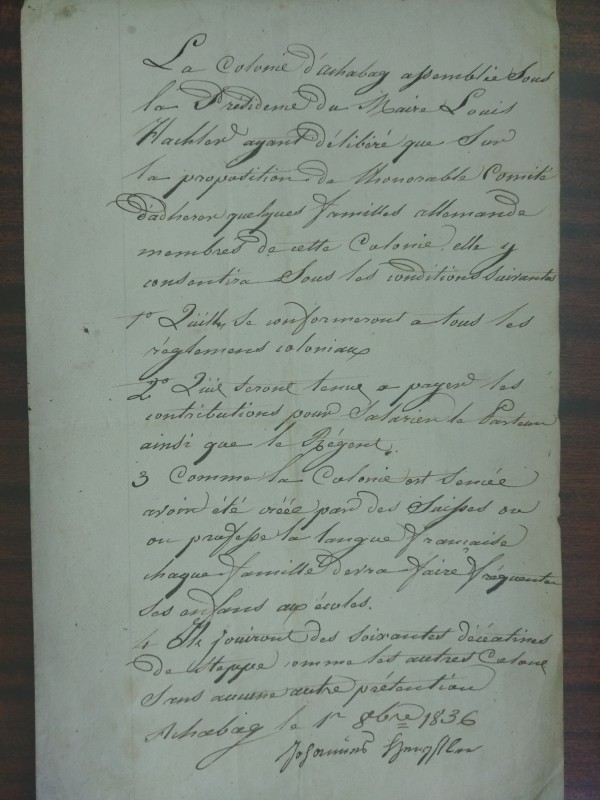 La Colonie d'Achabag assemblée sous
la Présidence du Maire Louis
Hachler ayant délibéré que sur
la proposition de Lhonorable Comité
d'adherer quelques familles allemande
membres de cette Colonie, elle y
consentira sous les conditions suivantes
1º Qu'ils se conformerons a tous les
réglemens coloniaux
2º Qu'il serons tenue a payer les
contributions pour Salarier le Pasteur
ainsi que le Régent.
3 Comme la Colonie est sensée
avoir été créée par des Suisses ou
on professe la langue française
chaque famille devra faire fréquenter
ses enfans aux écoles.
4 Ils jouiront des soixantes décéatines
de Steppe comme les autres Colons
sans aucune autre prétention
Achabag le 1r 8bre 1836
Johannes